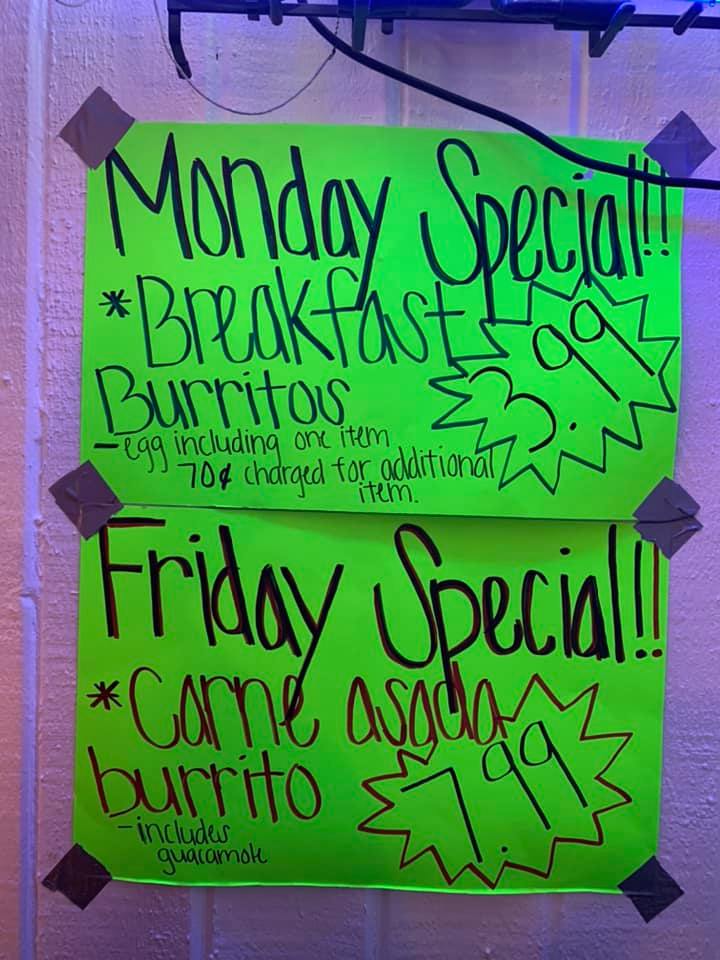 Monday Special!!
*Breakfast
Burritos
3.99
-egg including one item
70¢ charged for additional
item.
Friday Special!!
*Carne asada
burrito
7.99
-includes
guacamole